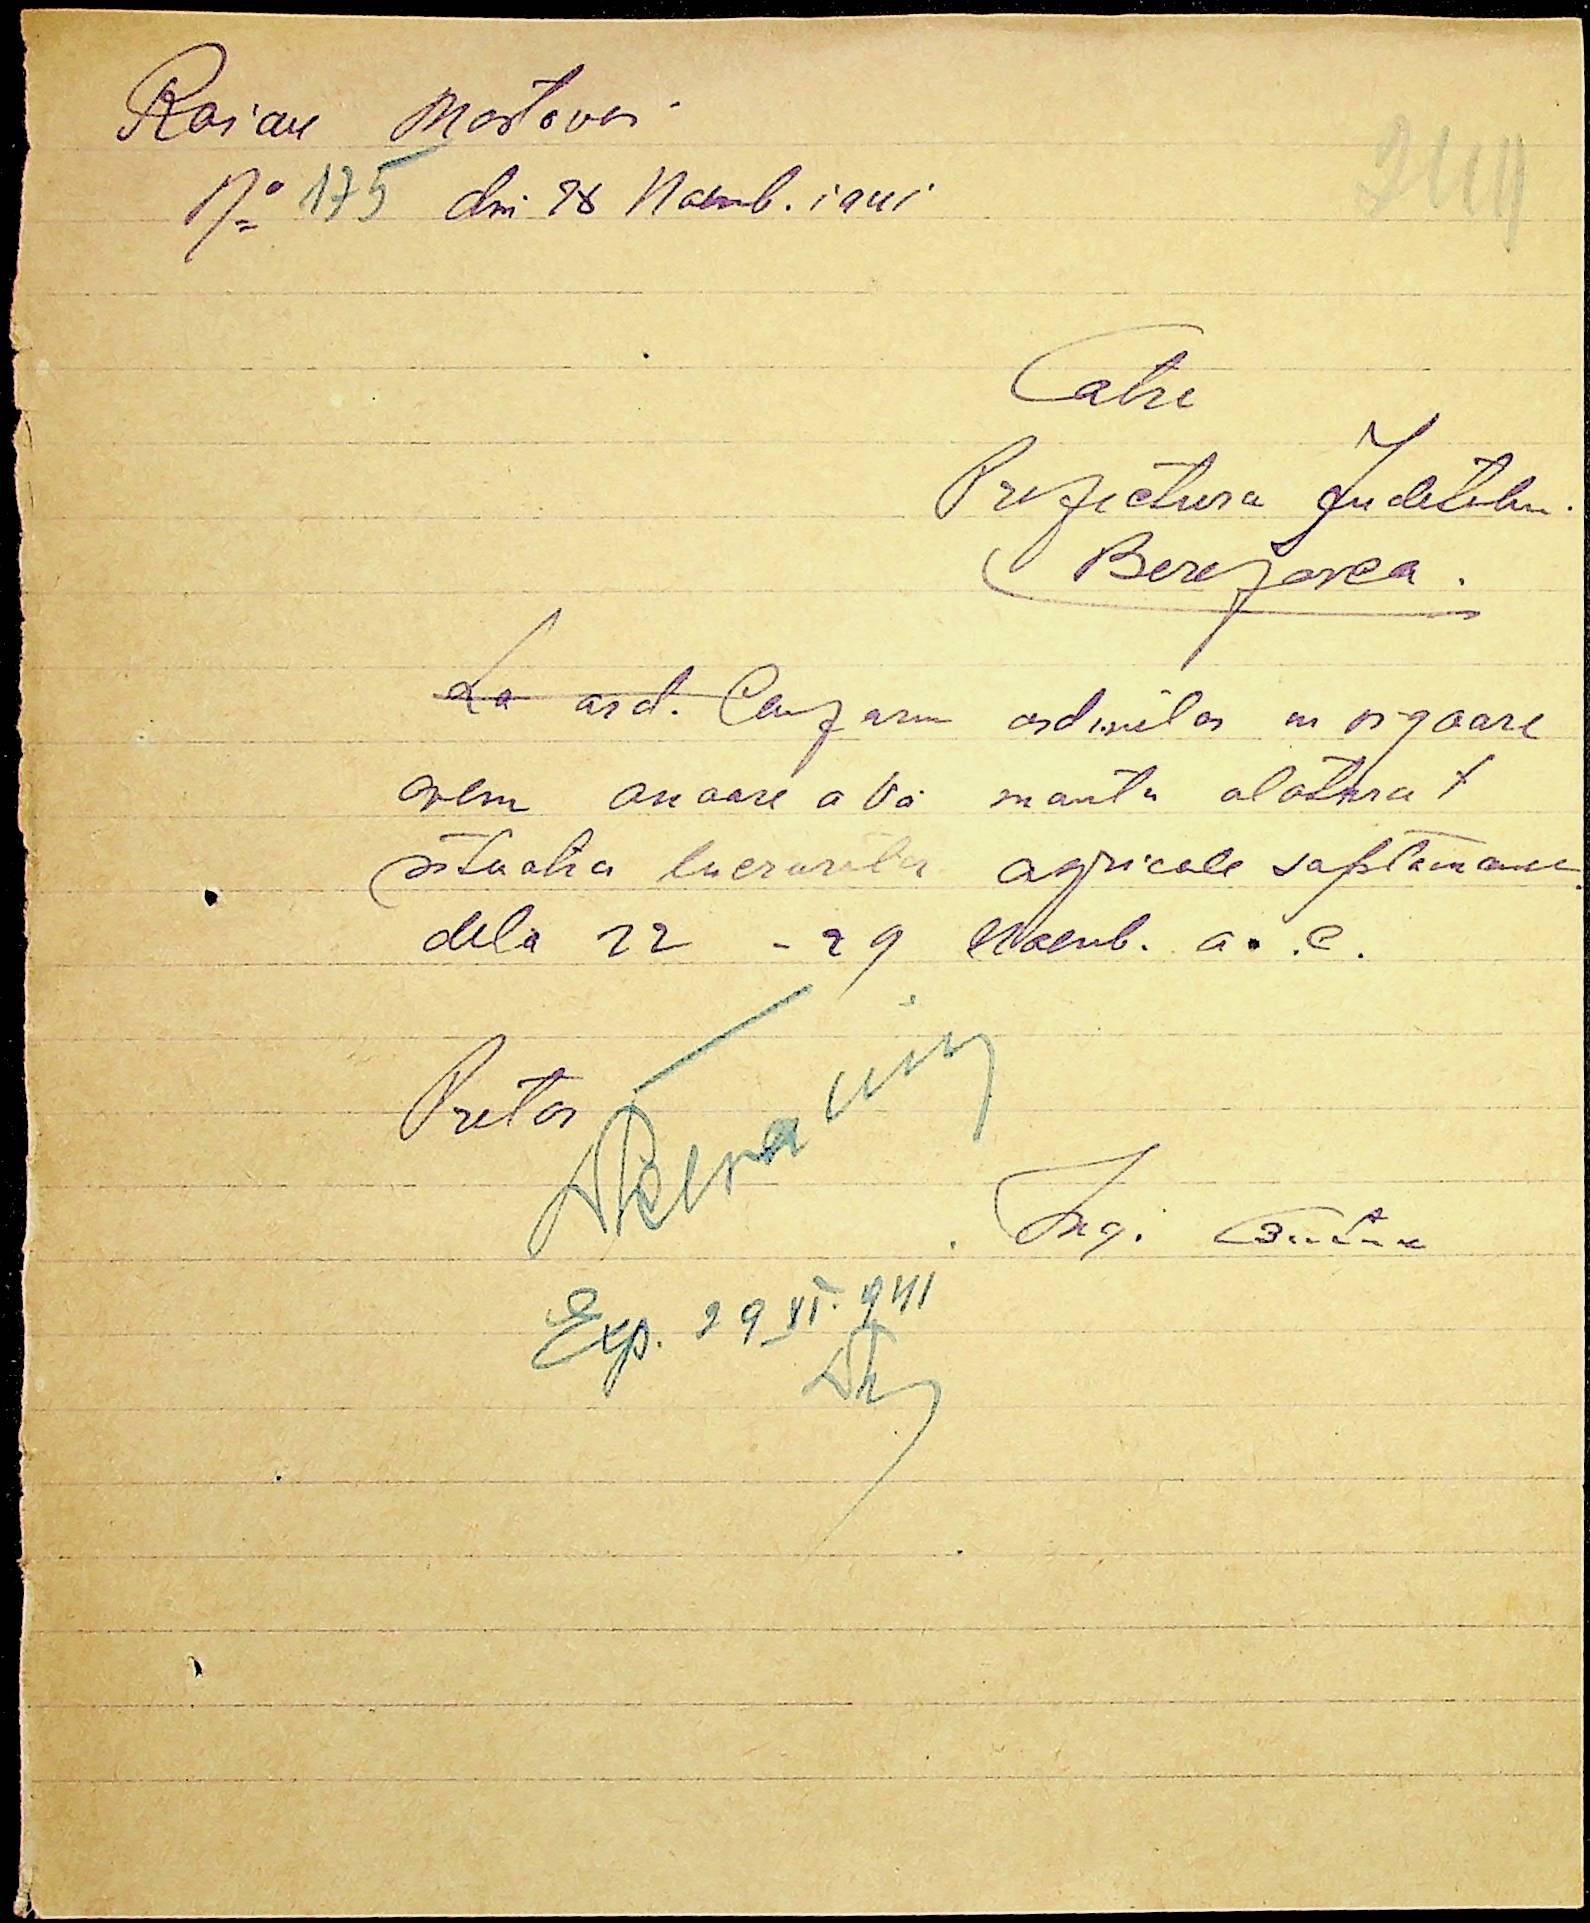 Raion Mostovoi
244
No 175 din 28 Noemb. 1941
Catre
Prefectura Judetulu.
Berezovca.
La ord. Conform ordinelor in vigoare
avem onoare a Vă inainta alăturat
situatia lucrarilor agricole saptamana
dela 22 - 29 Noemb. a. c.
Pretor
Ing.
Exp. 29 XI. 941